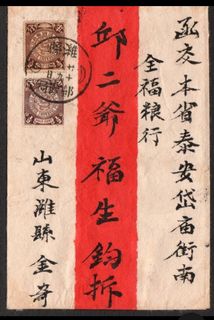 函交本省泰安岱庙街南
全福粮行
邱二爷福生鈞拆
山東濰縣金寄